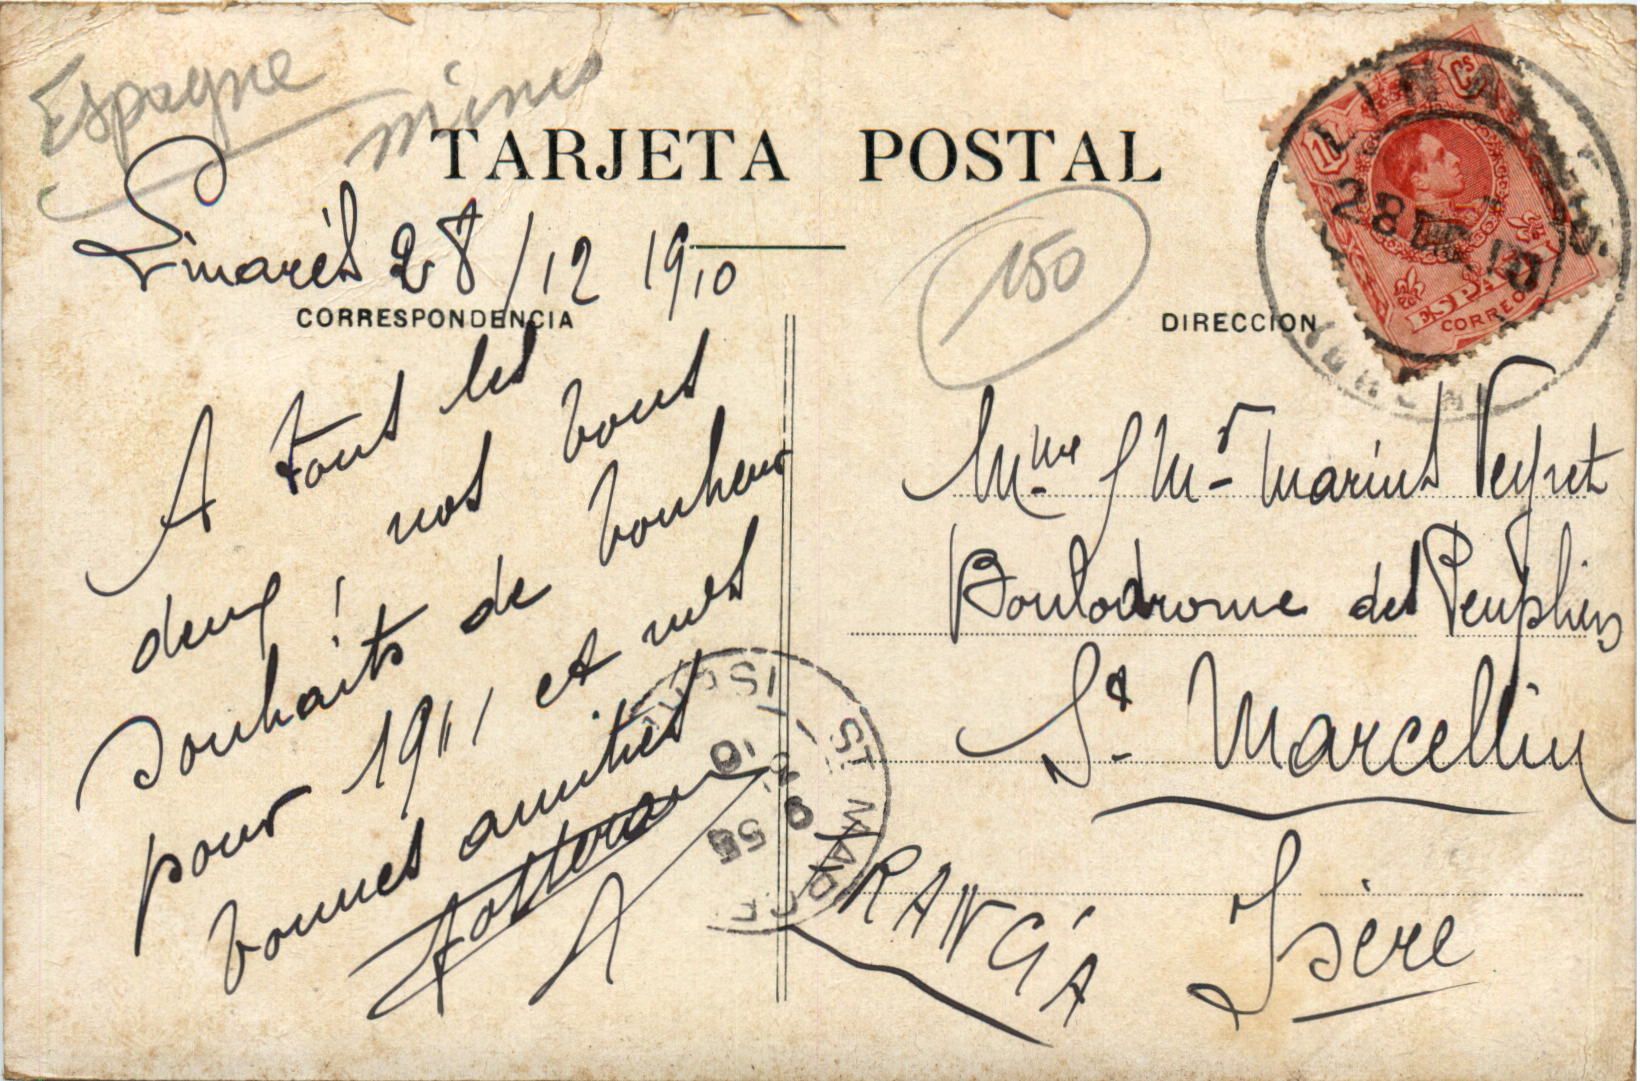 Espagne mines
TARJETA POSTAL
Linarés 28/12 1910
150
CORRESPONDENCIA
DIRECCION
A tous les
deux, nos bons
souhaits de bonheur
pour 1911, et mes
bonnes amitiés
Mme & Mr Marius Veyret
Boulodrome des Peupliers
St. Marcellin
Isère
FRANCIA
10 Cs
ESPAÑA
CORREOS
LINARES
28 DIC 10
ST MARCELLIN
ISERE